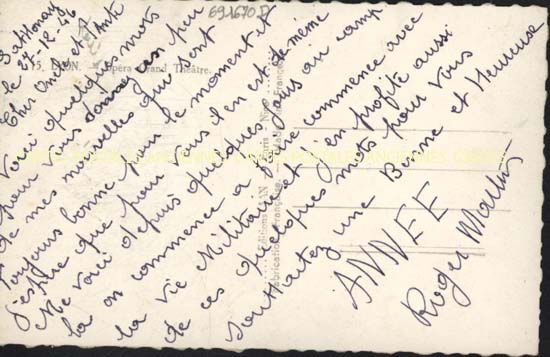 Sathonay
le 27-12-46
Cher Oncle et Tante
Voici quelques mots
pour vous donner un peu
de mes nouvelles qui sont
toujours bonne pour le moment et
j'espère que pour vous il en est de même
Me voici depuis quelques jours au camp
la on commence a faire commence avec
la vie Militaire et j'en profite aussi
de ces quelques mots pour vous
souhaitez une Bonne et Heureuse
ANNEE
Roger
691670 D
15. LYON. - Opéra Grand Théâtre.
Editions GAN Paris Nice
Fabrication Française